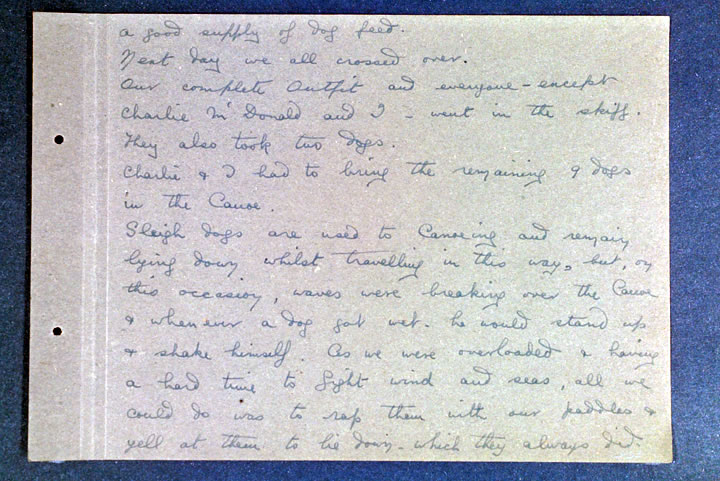 a good supply of dog feed.
Next day we all crossed over.
Our complete Outfit and everyone - except
Charlie McDonald and I - went in the skiff.
They also took two dogs.
Charlie & I had to bring the remaining 9 dogs
in the Canoe.
Sleigh dogs are used to Canoeing and remain
lying down whilst travelling in this way, but, on
this occasion, waves were breaking over the Canoe
& whenever a dog got wet. he would stand up
& shake himself. As we were overloaded & having
a hard time to fight wind and seas, all we
could do was to rap them with our paddles &
yell at them to lie down - which they always did